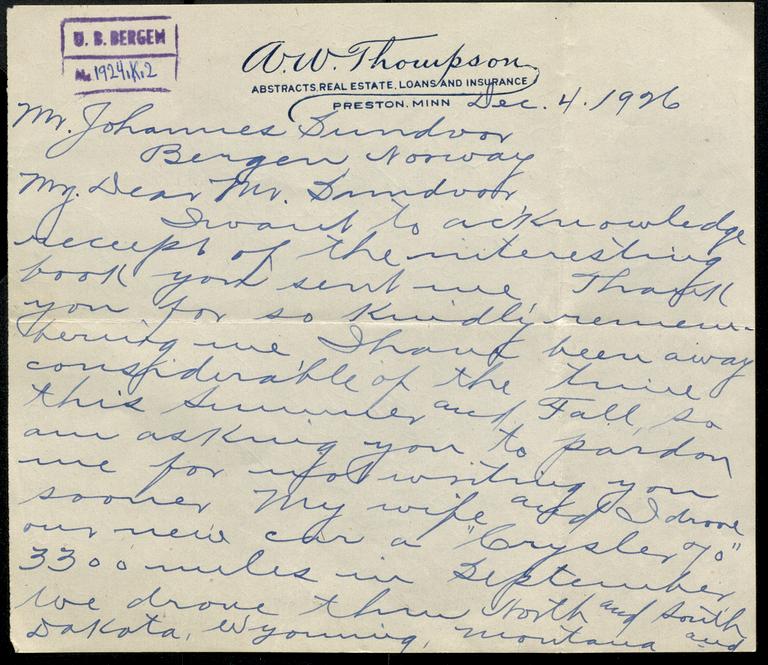 U. B. BERGEN
No. 1924.K.2
A.W. Thompson
ABSTRACTS, REAL ESTATE, LOANS AND INSURANCE
PRESTON, MINN
Dec. 4. 1926
Mr. Johannes Sundvor
Bergen Norway
My Dear Mr. Sundvor
I want to acknowledge
receept of the interesting
book you sent me Thank
you for so kindly remem-
bering me I have been away
considerable of the time
this Summer and Fall, so
am asking you to pardon
me for not writing you
sooner My wife and I drove
our new car a "Crysler 70"
3300 miles in September
we drove thru North and South
Dakota, Wyoming, Montana and